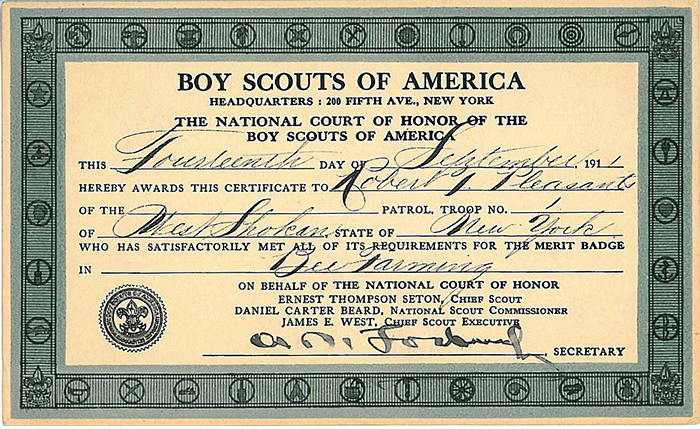 BOY SCOUTS OF AMERICA
HEADQUARTERS : 200 FIFTH AVE., NEW YORK
THE NATIONAL COURT OF HONOR OF THE
BOY SCOUTS OF AMERICA
THIS Fourteenth DAY OF September, 1911
HEREBY AWARDS THIS CERTIFICATE TO Robert J. Pleasants
OF THE PATROL, TROOP NO. 1
OF West Shokan STATE OF New York
WHO HAS SATISFACTORILY MET ALL OF ITS REQUIREMENTS FOR THE MERIT BADGE
IN Bee Farming
ON BEHALF OF THE NATIONAL COURT OF HONOR
ERNEST THOMPSON SETON, CHIEF SCOUT
DANIEL CARTER BEARD, NATIONAL SCOUT COMMISSIONER
JAMES E. WEST, CHIEF SCOUT EXECUTIVE
, SECRETARY